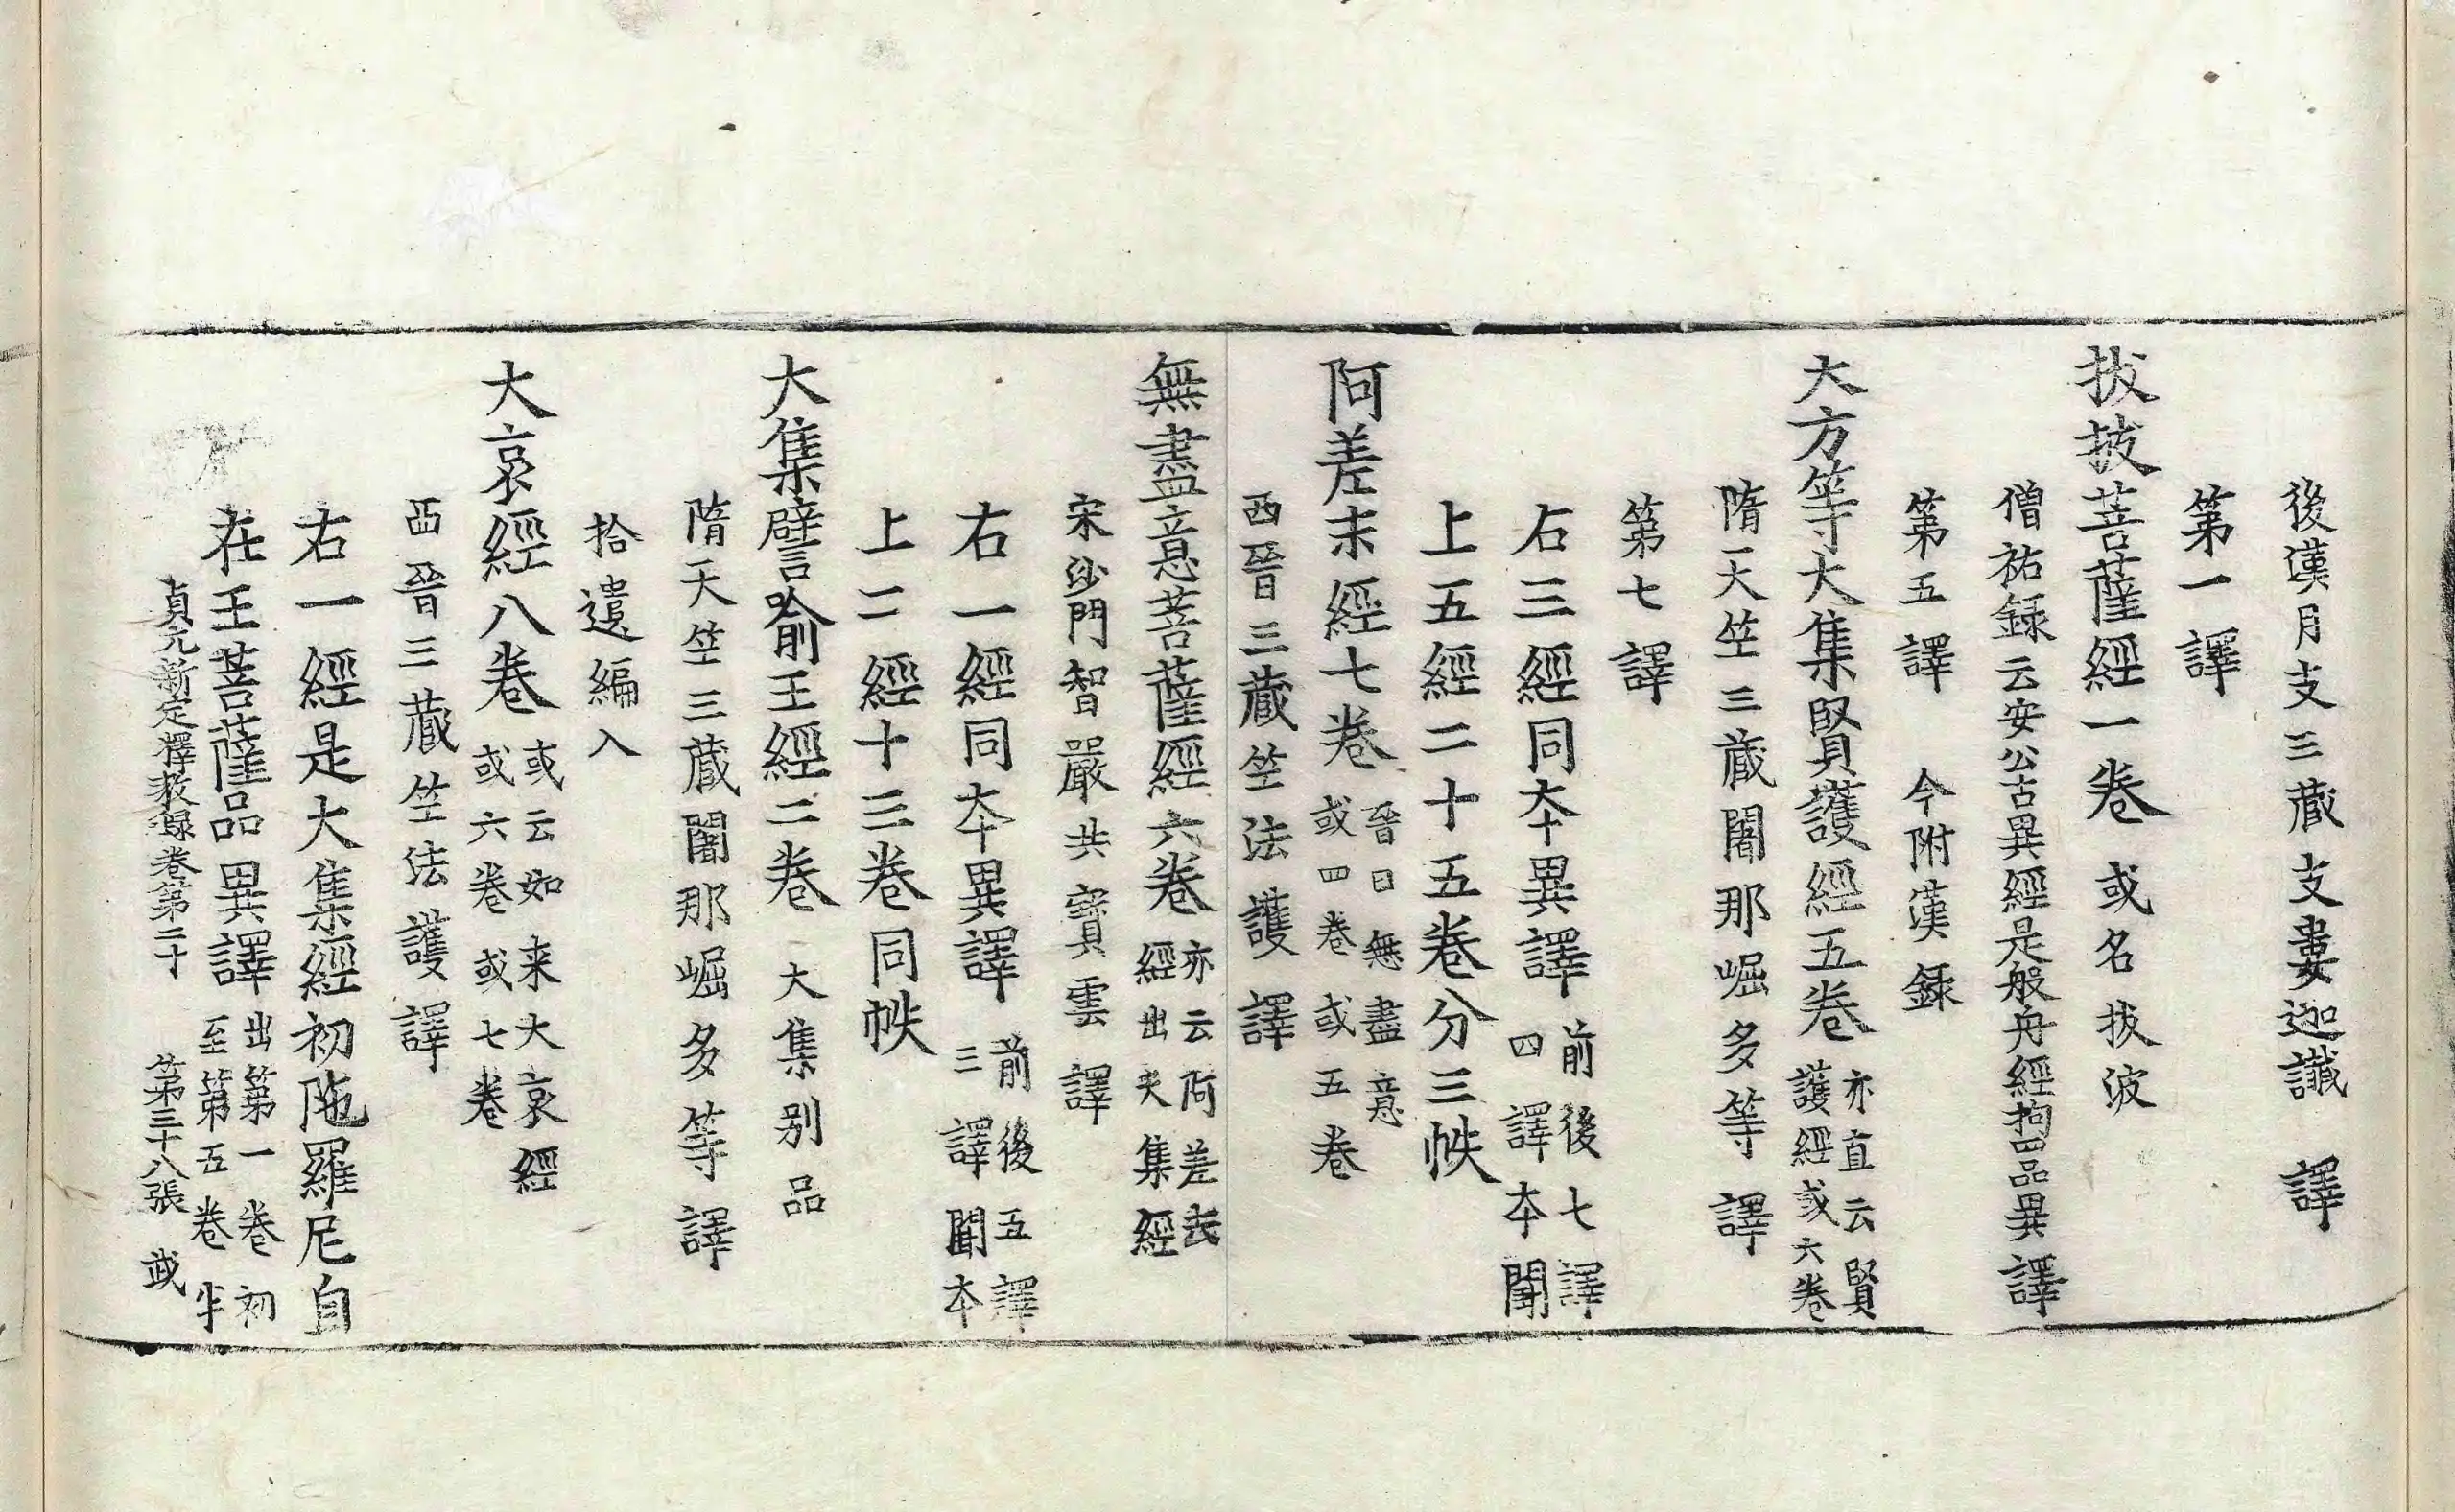 後漢月支三藏支婁迦讖譯
第一譯
拔披菩薩經一卷 或名拔波
僧祐録云安公古異經是般舟經拘四品異譯
第五譯 今附漢録
大方等大集賢護經五卷 亦直云賢
護經或六卷
隋天竺三藏闍那崛多等譯
第七譯
右三經同夲異譯 前後七譯
四譯夲闕
上五經二十五卷分三帙
阿差末經七卷 晉曰無盡意
或四卷或五卷
西晉三藏竺法護譯
無盡意菩薩經六卷 亦云阿差末
經出大集經
宋沙門智嚴共寶雲譯
右一經同夲異譯 前後五譯
三譯闕夲
上二經十三卷同帙
大集譬喻王經二卷 大集别品
隋天竺三藏闍那崛多等譯
拾遺編入
大哀經八卷 或云如来大哀經
或六卷或七卷
西晉三藏竺法護譯
右一經是大集經初陁羅尼自
在王菩薩品異譯 出第一卷初
至第五卷半
貞元新定釋教録卷第二十 第三十八張 武